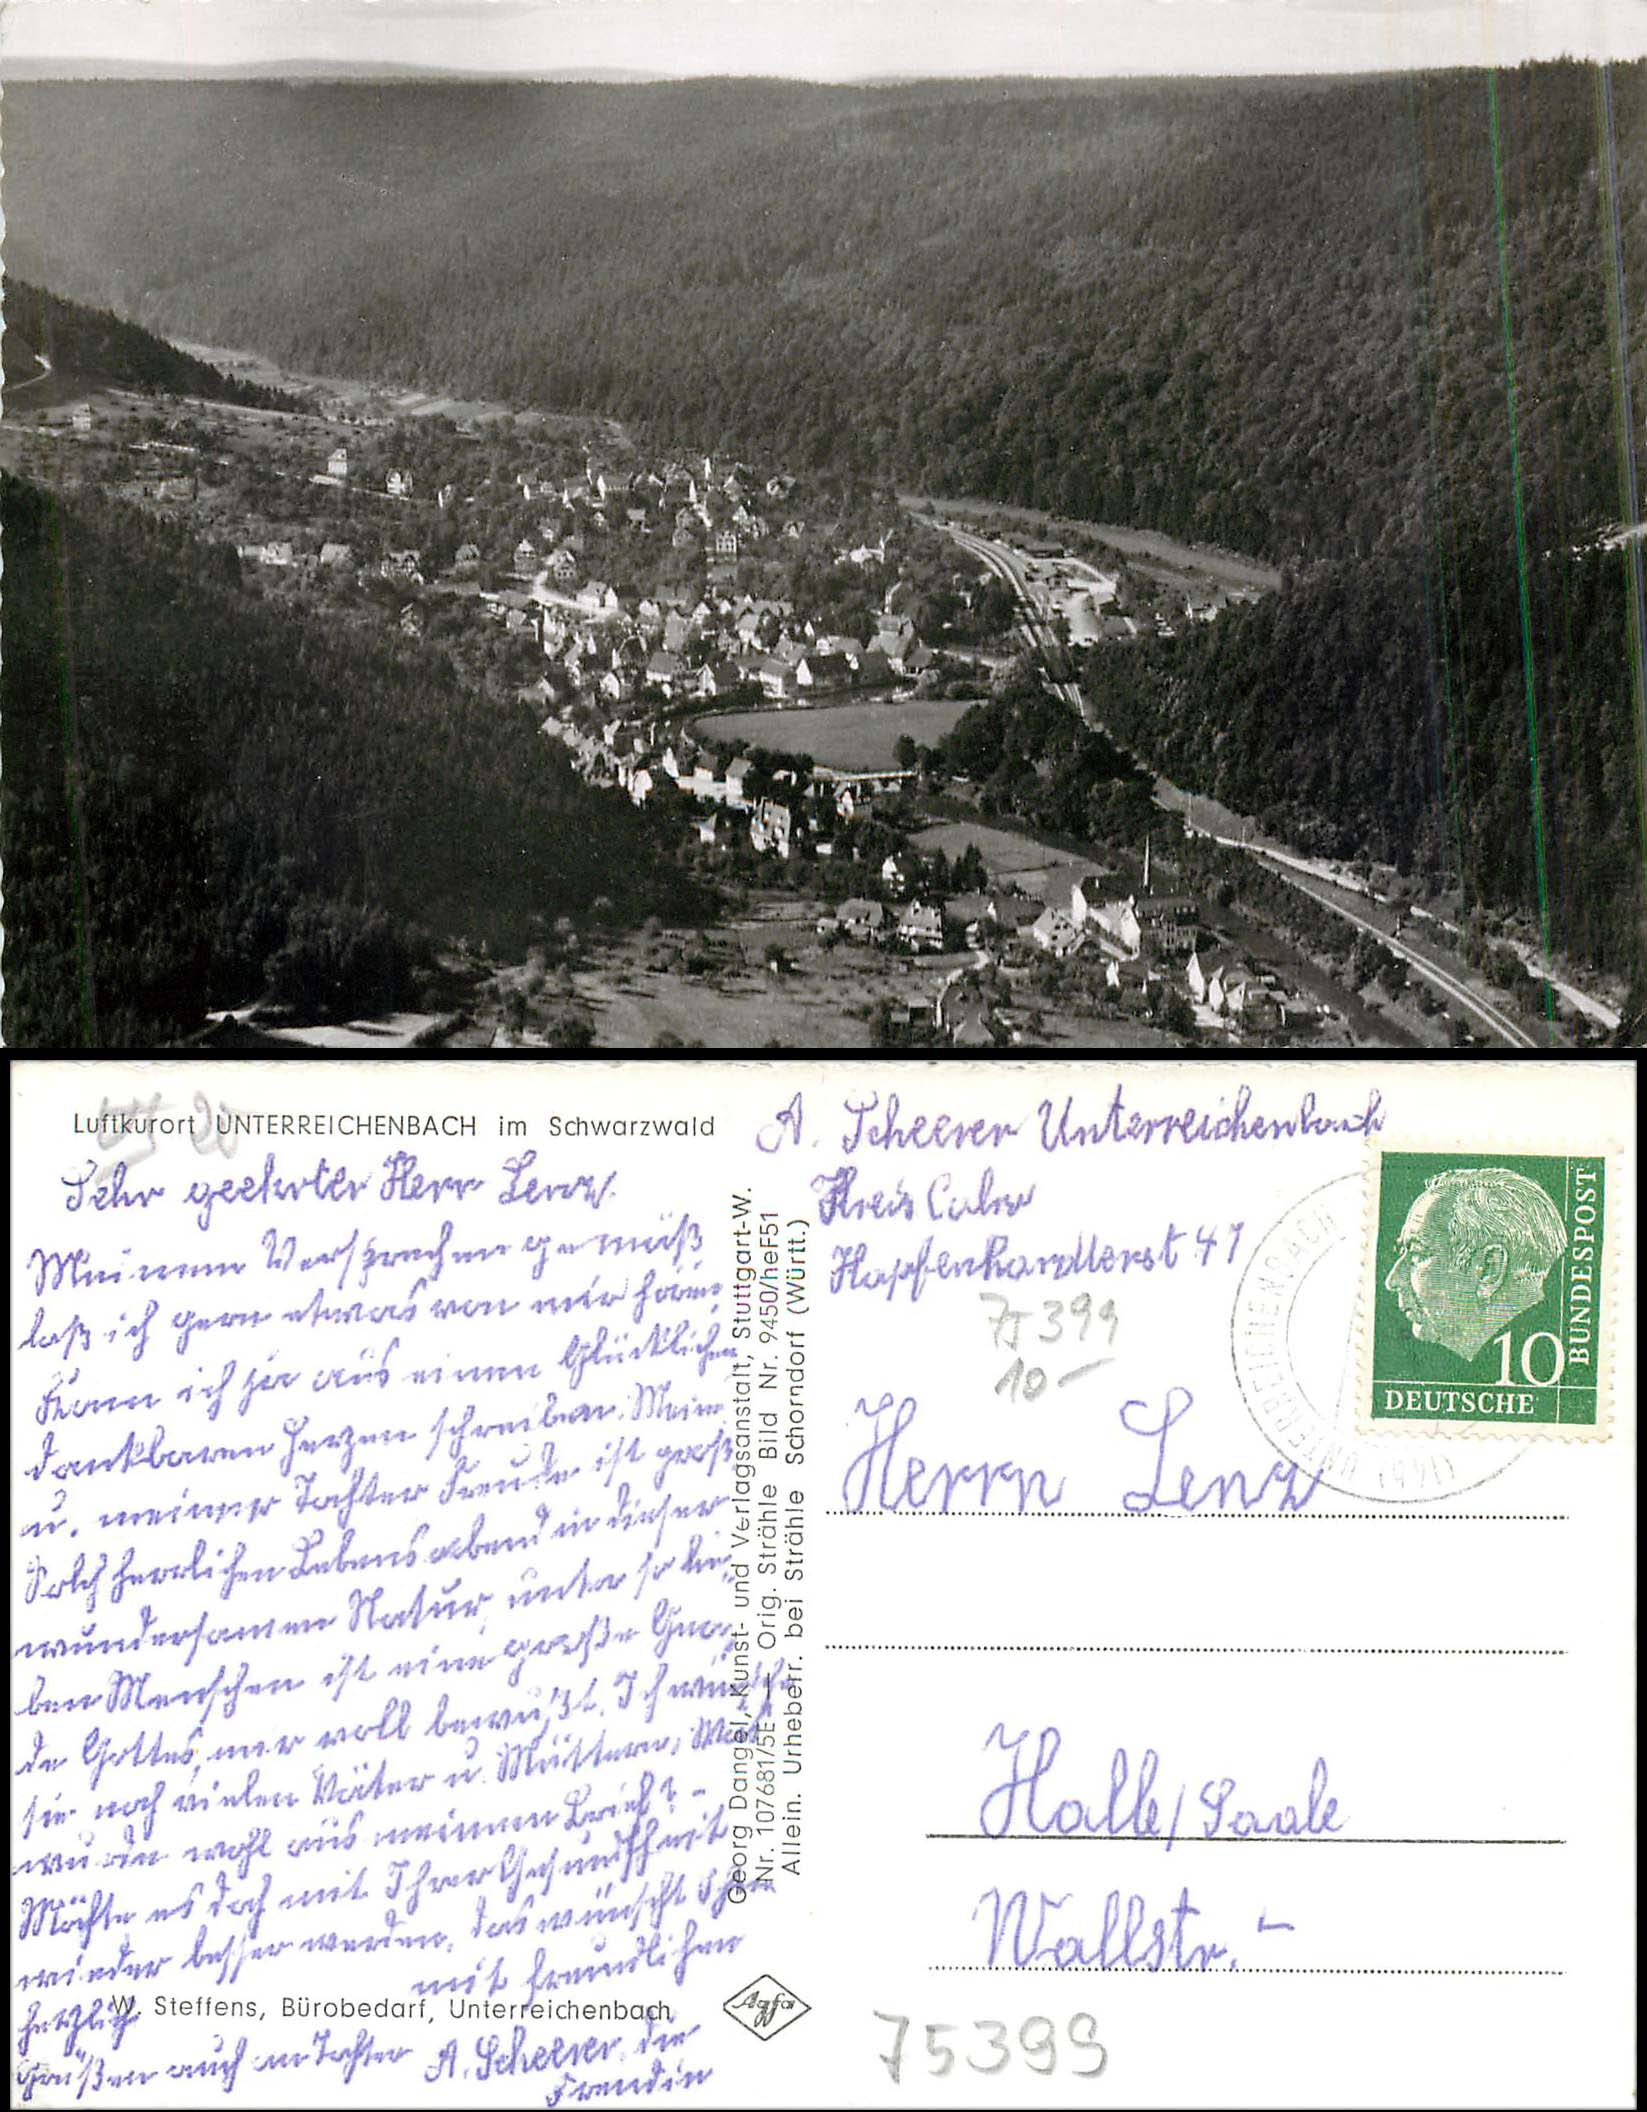 Luftkurort UNTERREICHENBACH im Schwarzwald
Sehr geehrter Herr Lenz.
Meinem Versprechen gemäß
laß ich gern etwas von mir hören
Kann ich ja aus einem Glücklichen
dankbaren Herzen schreiben. Meine
u. meiner Tochter Freude ist groß
Solch herrlichen Lebensabend in dieser
wundersamen Natur, unter so lie-
ben Menschen ist eine große Gna-
de Gottes, mir voll bewußt. Ich wünsche
sie noch vielen Väter u. Müttern. Was
wurde wohl aus meinem Brief? -
Möchte es doch mit Ihrer Gesundheit
wieder besser werden, das wünscht Ihnen
herzlich mit freundlichen
Grüßen auch an Tochter A. Scheerer die
Freundin
W. Steffens, Bürobedarf, Unterreichenbach
Georg Dangel, Kunst- und Verlagsanstalt, Stuttgart-W.
Nr. 107681/5E — Orig. Strähle Bild Nr. 9450/heF51
Allein. Urheberr. bei Strähle Schorndorf (Württ.)
Agfa
A. Scheerer Unterreichenbach
Kreis Calw
Kapfenhardterst 41
75399
10-
UNTERREICHENBACH
DEUTSCHE
BUNDESPOST
10
Herrn Lenz
Halle/Saale
Wallstr. -
75399